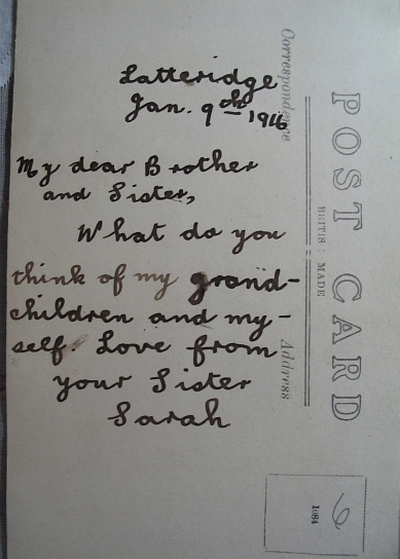 Latteridge
Jan. 9th - 1916
My dear Brother
and Sister,
What do you
think of my grand-
children and my-
self. Love from
your Sister
Sarah
Correspondence
Address
POST CARD
BRITISH MADE
1084